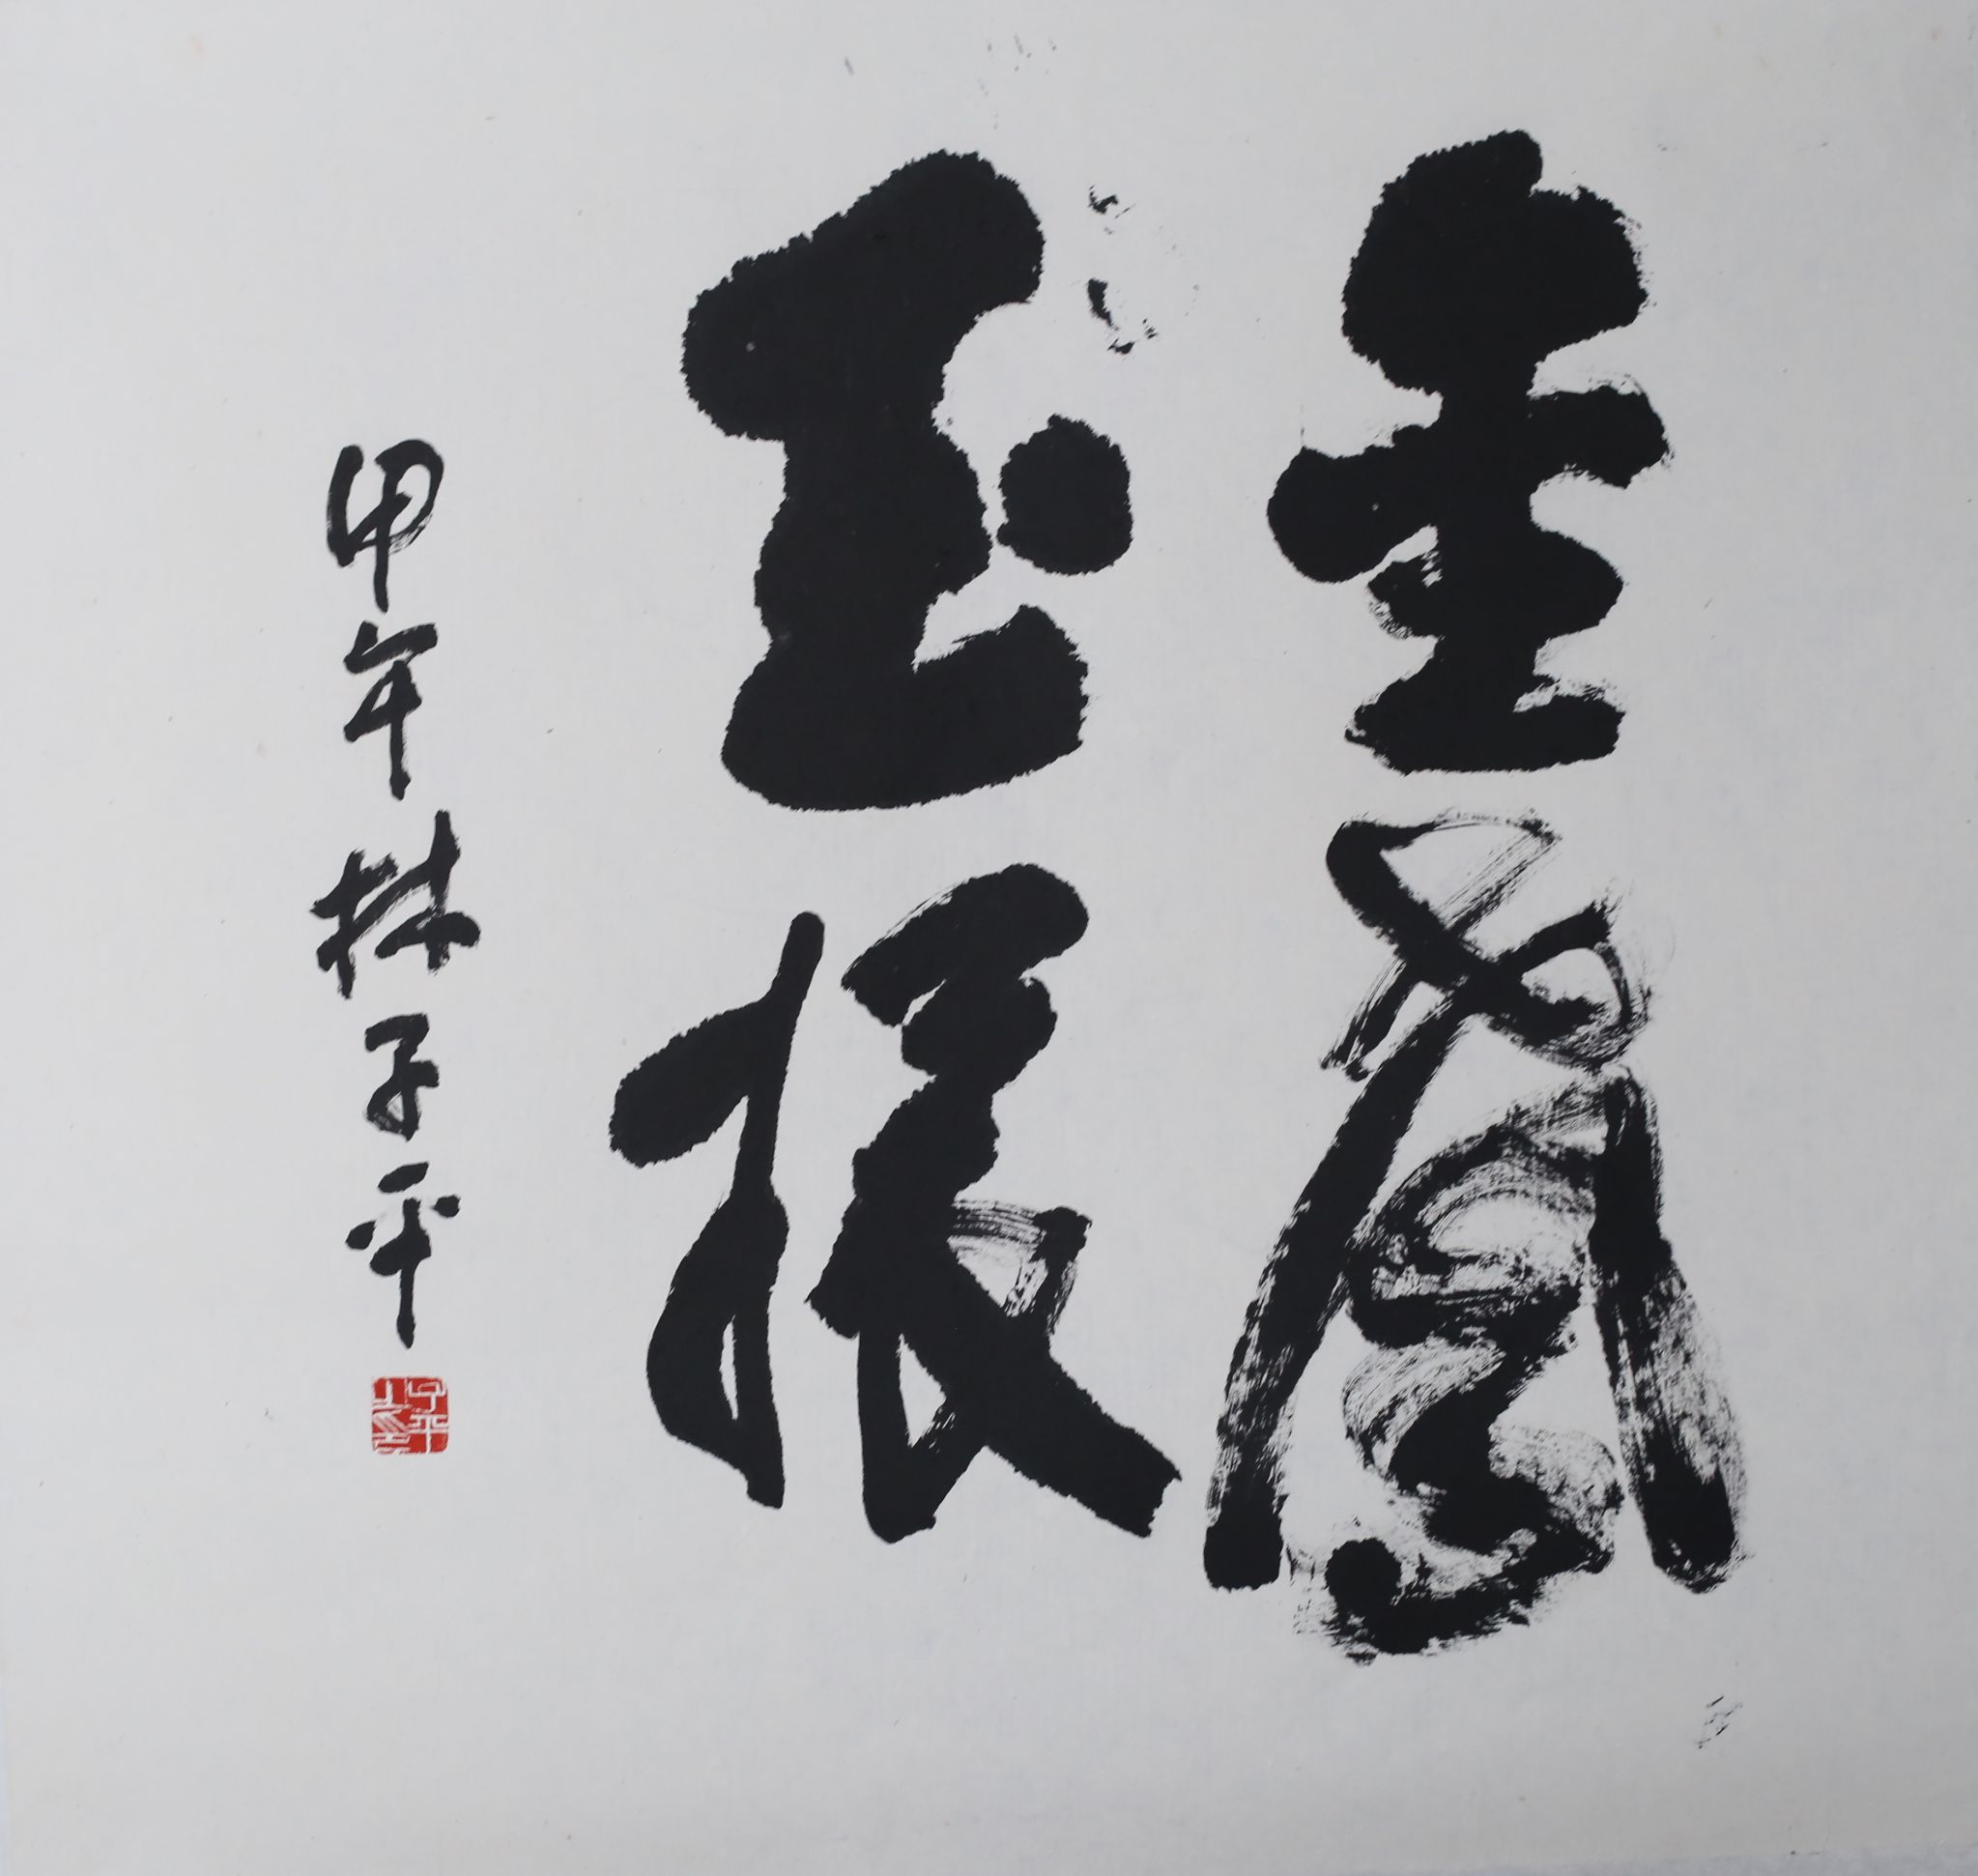 金聲
玉振
甲午林子平